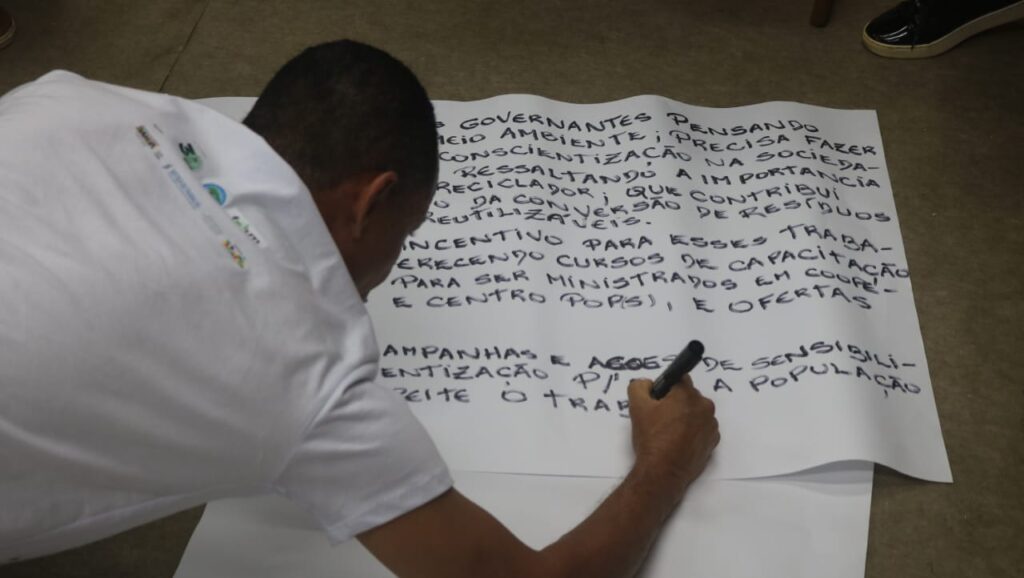 S GOVERNANTES PENSANDO
MEIO AMBIENTE; PRECISA FAZER
CONSCIENTIZAÇÃO NA SOCIEDA-
RESSALTANDO A IMPORTANCIA
RECICLADOR; QUE CONTRIBUI
O DA CONVERSÃO DE RESÍDUOS
REUTILIZÁVEIS.
INCENTIVO PARA ESSES TRABA-
ERECENDO CURSOS DE CAPACITAÇÃO
PARA SER MINISTRADOS EM COOPE-
E CENTRO POP(S), E OFERTAS
AMPANHAS E AÇOES DE SENSIBILI-
ENTIZAÇÃO P/ A POPULAÇÃO
PEITE O TRAB